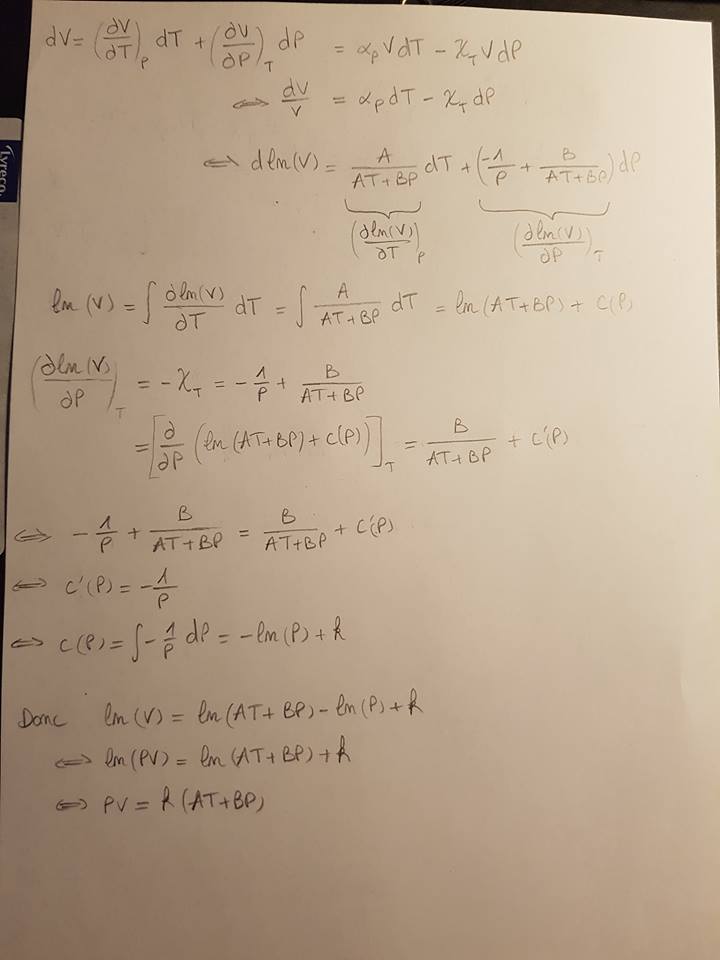 dV = (∂V/∂T)_P dT + (∂V/∂P)_T dP = α_P V dT − χ_T V dP
⇔ dV/V = α_P dT − χ_T dP
⇔ dln(V) = A/(AT+BP) dT + (−1/P + B/(AT+BP)) dP
(∂ln(V)/∂T)_P (∂ln(V)/∂P)_T
ln(V) = ∫ ∂ln(V)/∂T dT = ∫ A/(AT+BP) dT = ln(AT+BP) + C(P)
(∂ln(V)/∂P)_T = −χ_T = −1/P + B/(AT+BP)
= [∂/∂P (ln(AT+BP) + C(P))]_T = B/(AT+BP) + C'(P)
⇔ −1/P + B/(AT+BP) = B/(AT+BP) + C'(P)
⇔ C'(P) = −1/P
⇔ C(P) = ∫ −1/P dP = −ln(P) + k
Donc ln(V) = ln(AT+BP) − ln(P) + k
⇔ ln(PV) = ln(AT+BP) + k
⇔ PV = k(AT+BP)
lyreco